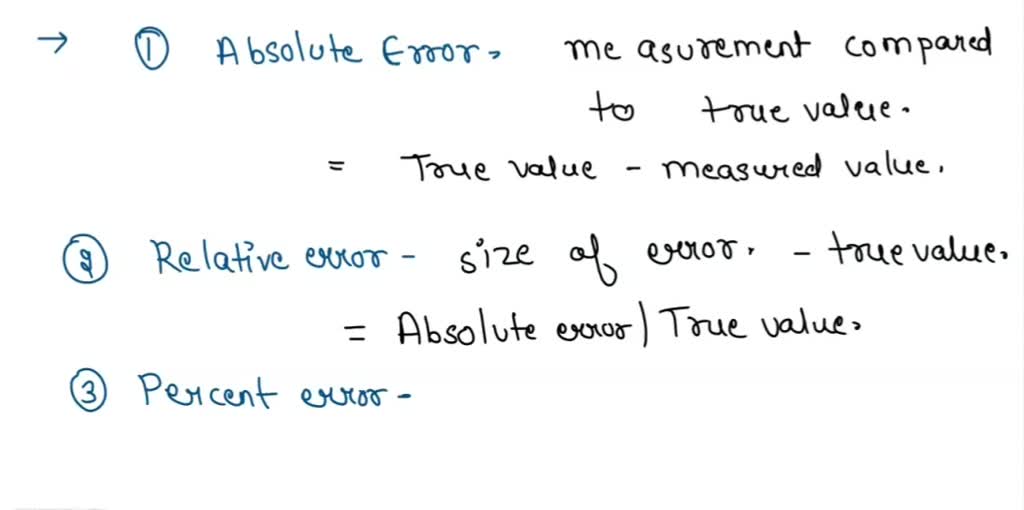 → ① Absolute Error, measurement compared
to true value.
= True value - measured value.
② Relative error - size of error. - true value.
= Absolute error | True value.
③ Percent error -